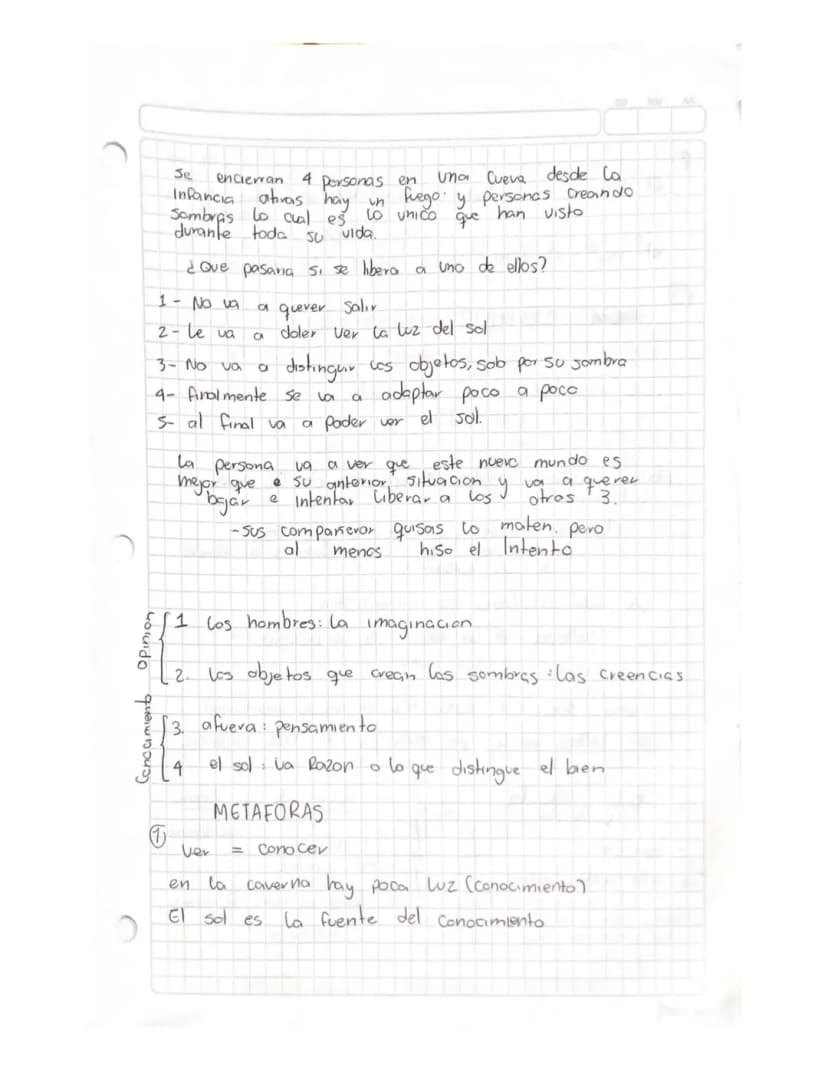 Se encierran 4 personas en una Cueva desde la
Infancia atras hay un fuego y personas creando
Sombras lo cual es lo unico que han visto
durante toda su vida.
¿Que pasaria si se libera a uno de ellos?
1- No va a querer salir
2- Le va a doler ver la luz del sol
3- No va a distinguir los objetos, solo por su sombra
4- finalmente se va a adaptar poco a poco
5- al final va a poder ver el sol.
La persona va a ver que este nuevo mundo es
mejor que a su anterior situacion y va a querer
bajar e intentar liberar a los otros 3.
- sus compañeros quisas lo maten. pero
al menos hiso el Intento
Opinion
1 los hombres: la imaginacion
2. los objetos que crean las sombras: las creencias
Conocimiento
3. afuera: pensamiento
4 el sol: la Razon o lo que distingue el bien
METAFORAS
①
ver = conocer
en la caverna hay poca luz (conocimiento)
El sol es la fuente del conocimiento